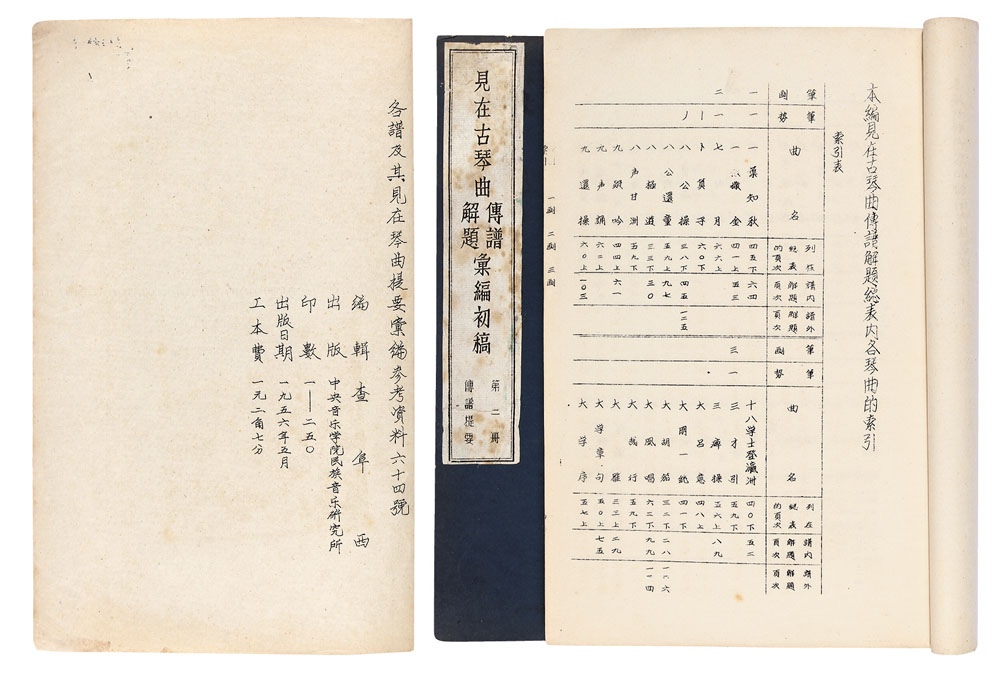 各譜及其見在琴曲提要彙編参考資料六十四號
編輯 查阜西
出版 中央音乐学院民族音乐研究所
印數 一——二五〇
出版日期 一九五六年五月
工本費 一元二角七分
見在古琴曲傳譜解題彙編初稿
第二冊
傳譜提要
本編見在古琴曲傳譜解題總表内各琴曲的索引
索引表
筆画
筆勢
曲名
列在總表的頁次
譜内解題頁次
譜外解題頁次
一 一 一葉知秋 四五下 六四
一 金 四一上 五三
二 一 七月 六六上
卜算子 六〇下
八公操 三八下 四五 一三五
八公還童 五九上 九七
八極遊 三三下 三〇
八声甘洲 五九下
九 吟 四四上 六一
九声誦 六二上
九還操 六〇上 一〇三
筆画
筆勢
曲名
列在總表的頁次
譜内解題頁次
譜外解題頁次
十八学士登瀛洲 四〇下 五二
三 一 三才引 五九下
三 操 五六上 八九
大呂意 四八上
大明一統 四一下
大胡笳 三二下 二八 一〇六
大風唱 六三下 九九 一一四
大 行 五九下
大雅 三三上 二九
大学章句 五〇上 七五
大学序 五七上